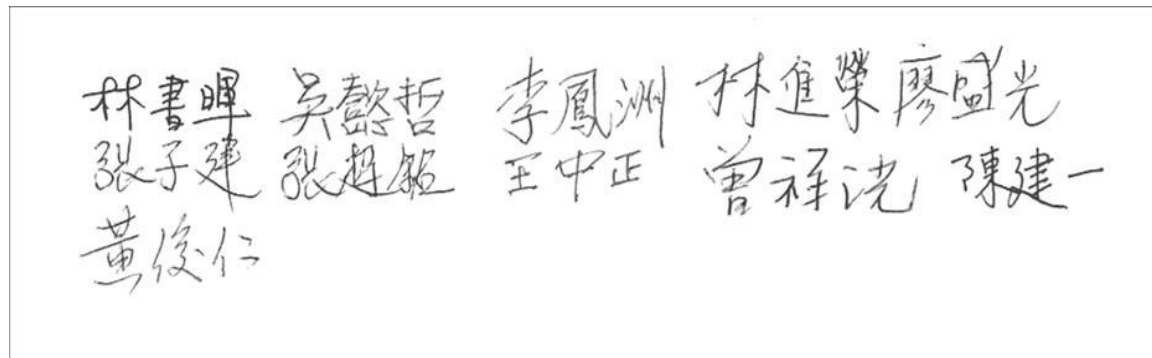 林書暉 吳懿哲 李鳳洲 林進榮 廖盛光
張子建 張 銘 王中正 曾祥洸 陳建一
黃俊仁